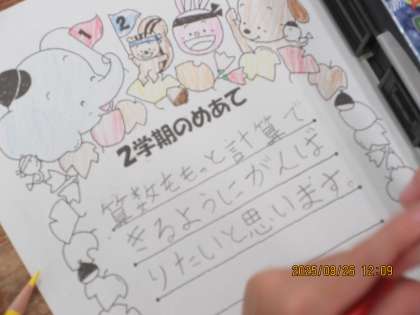 1 2
2学期のめあて
算数をもっと計算で
きるようにがんば
りたいと思います。
2025/08/26 12:09